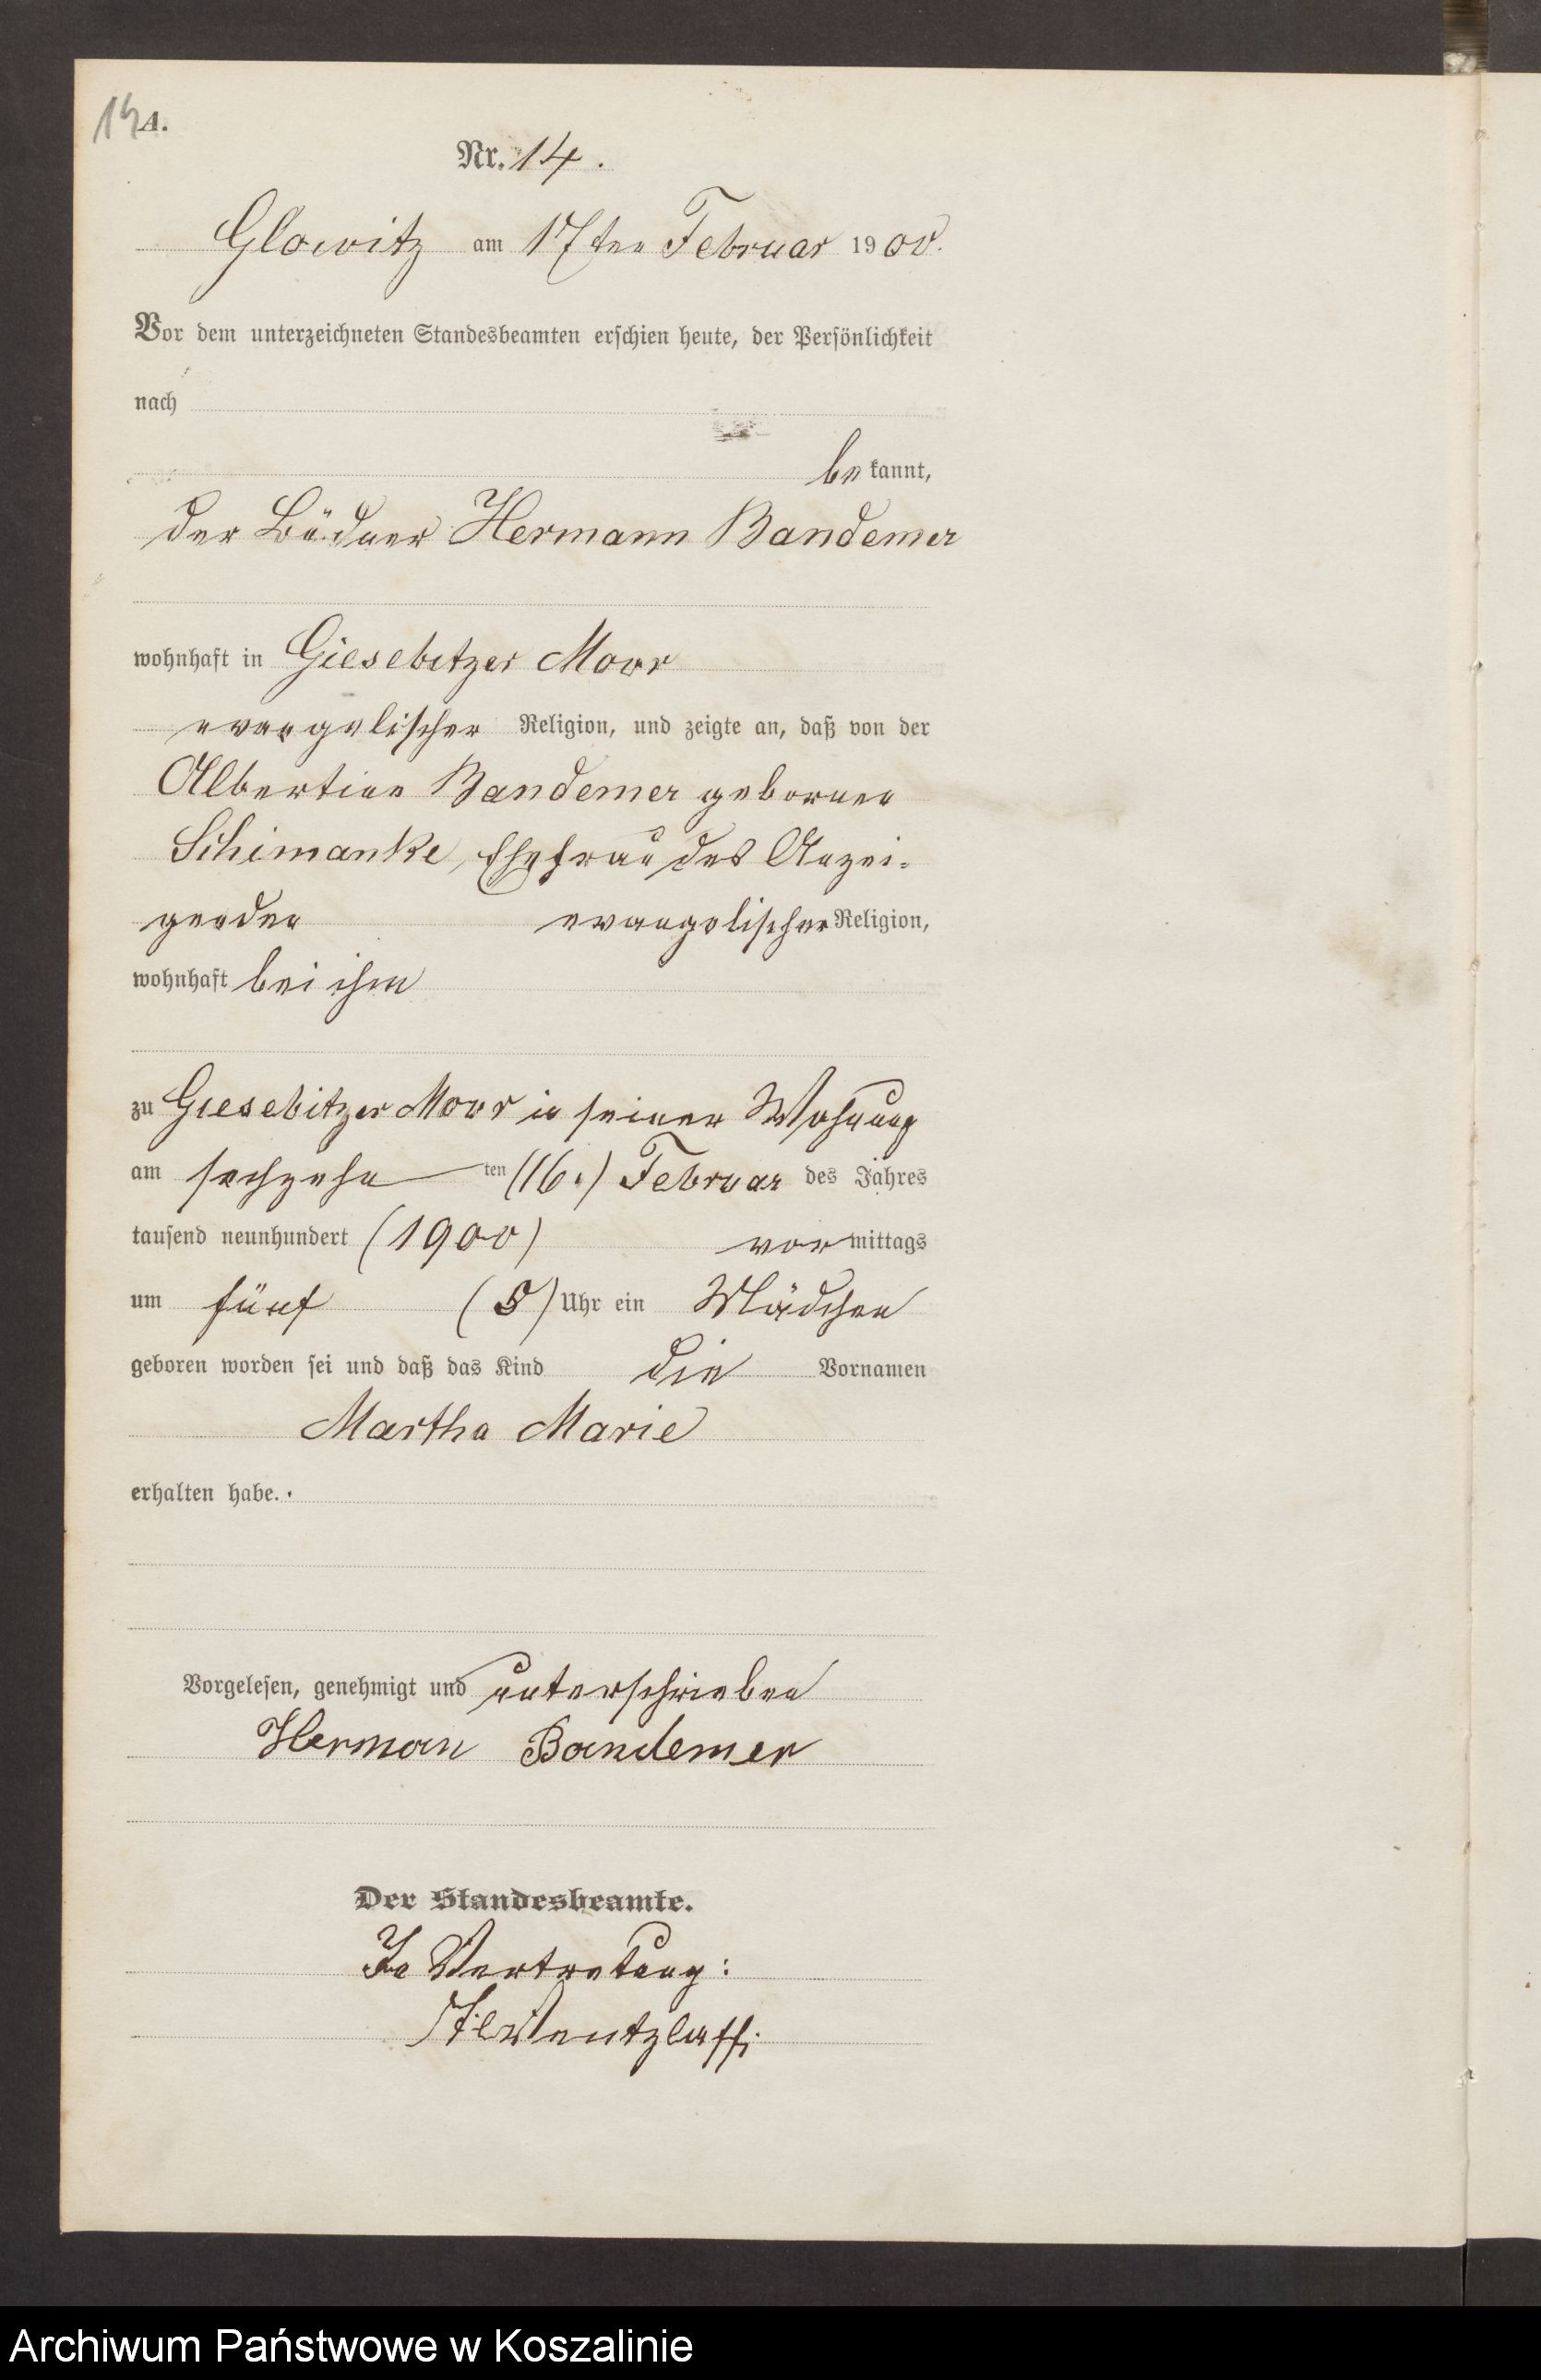 14 A.
Nr. 14.
Glowitz am 17ten Februar 1900.
Vor dem unterzeichneten Standesbeamten erschien heute, der Persönlichkeit
nach
bekannt,
der Büdner Hermann Bandemer
wohnhaft in Giesebitzer Moor
evangelischer Religion, und zeigte an, daß von der
Albertine Bandemer geborenen
Schimanke, Ehefrau des Anzei-
genden evangelischer Religion,
wohnhaft bei ihm
zu Giesebitzer Moor in seiner Wohnung
am sechzehn ten (16.) Februar des Jahres
tausend neunhundert (1900) vormittags
um fünf (5) Uhr ein Mädchen
geboren worden sei und daß das Kind die Vornamen
Martha Marie
erhalten habe.
Vorgelesen, genehmigt und unterschrieben
Herman Bandemer
Der Standesbeamte.
In Vertretung:
Wentzlaff.
Archiwum Państwowe w Koszalinie